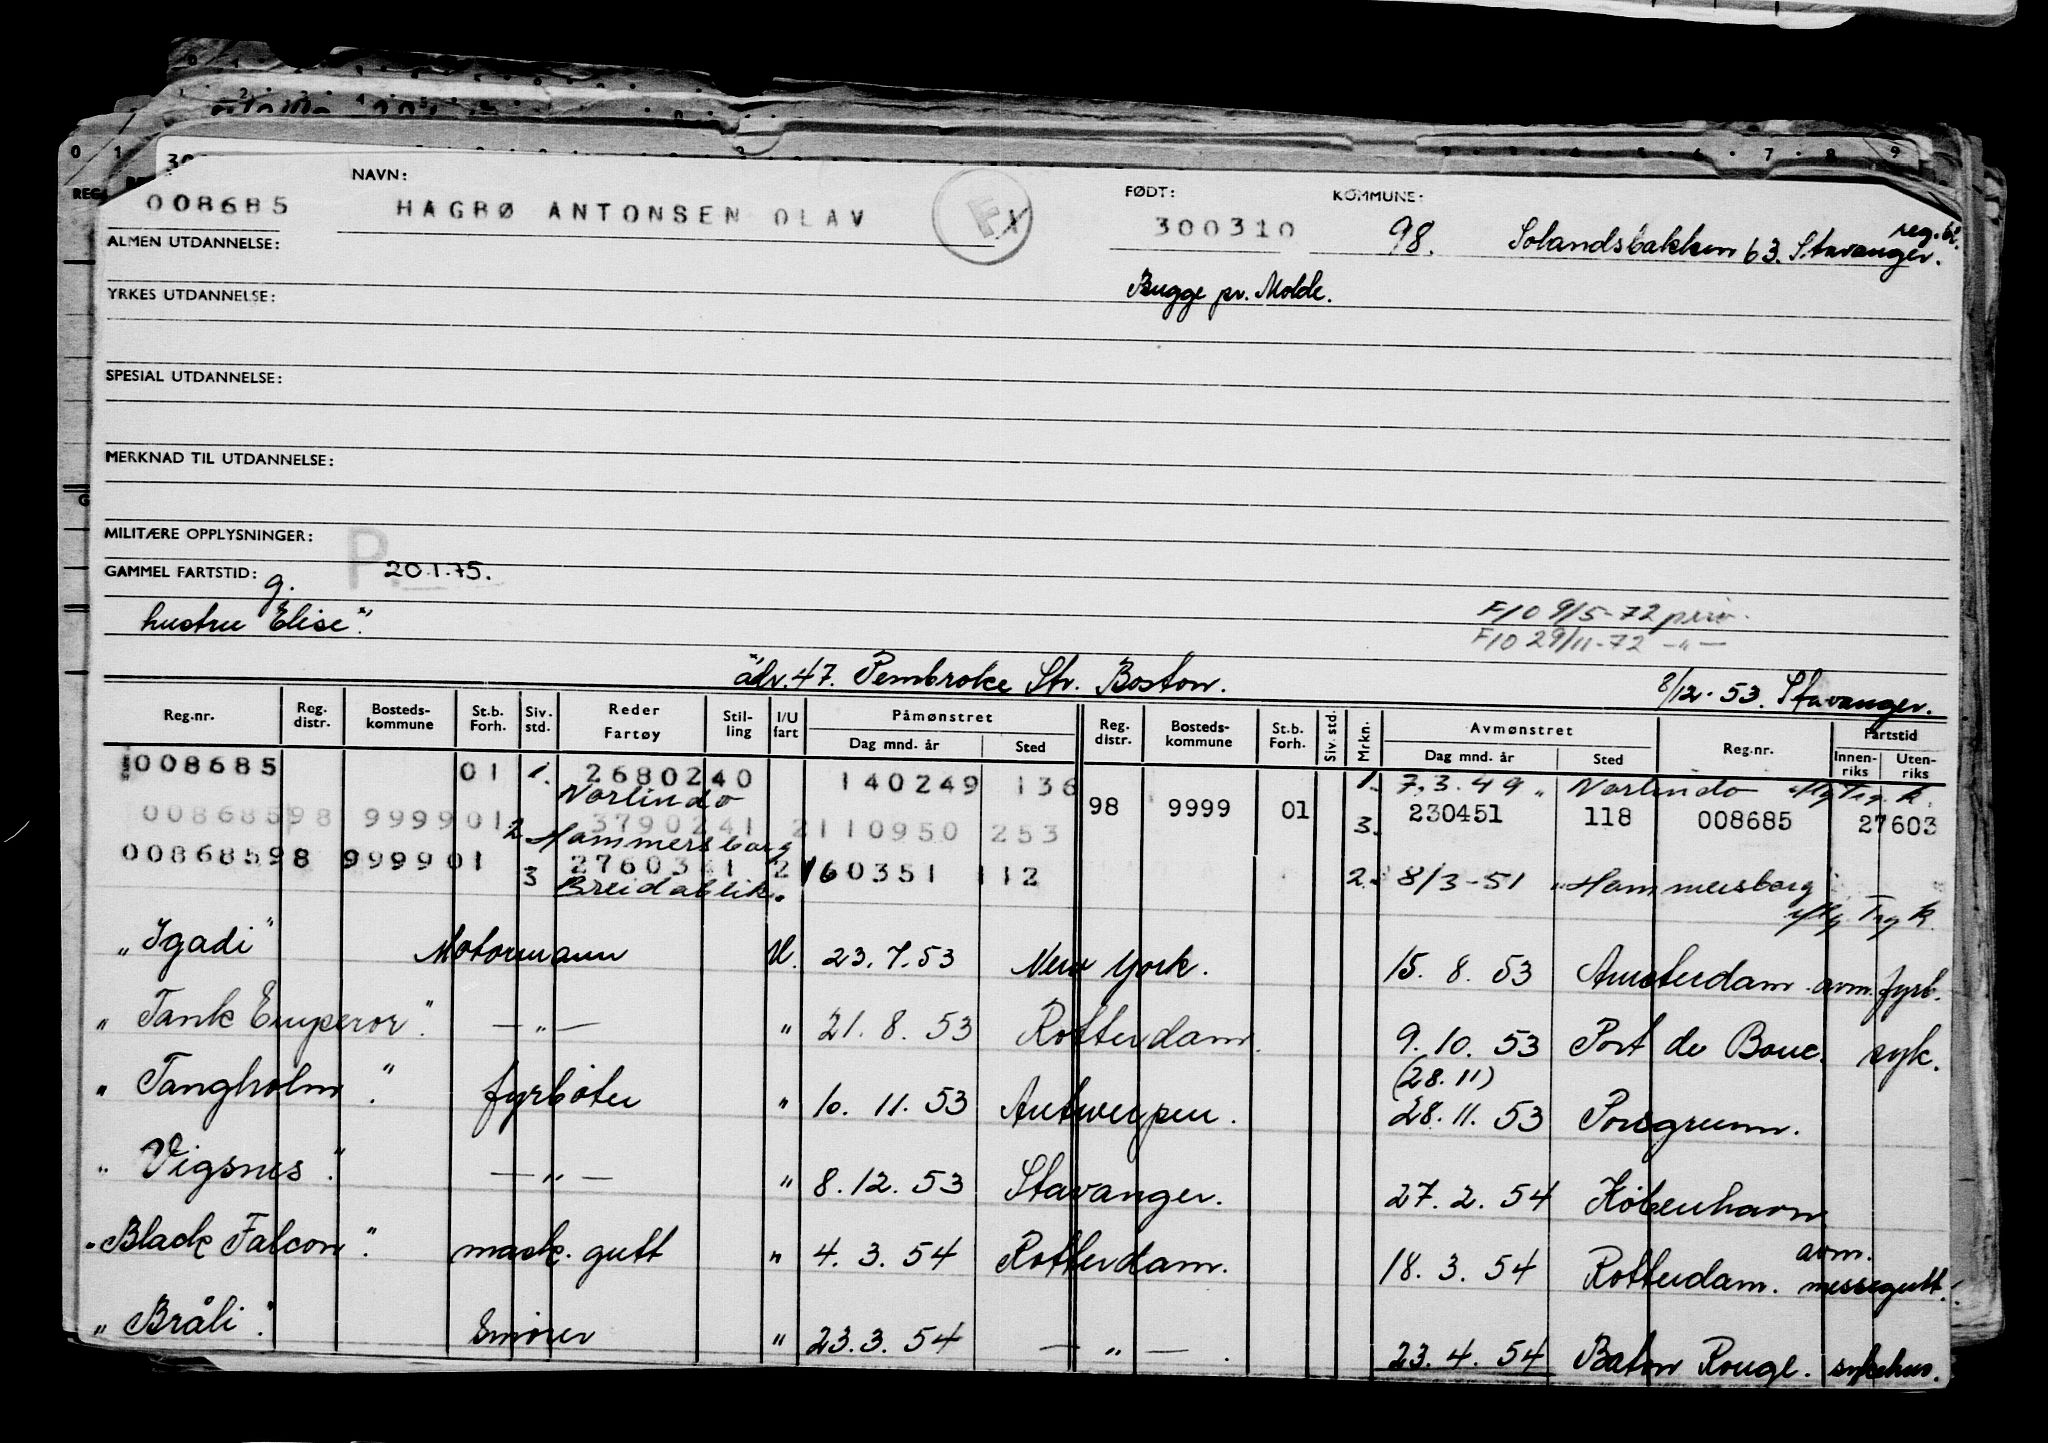 NAVN:
FØDT:
KOMMUNE:
008685 HAGBØ ANTONSEN OLAV F 300310 98. Solandsbakken 63. Stavanger. reg. bl.
ALMEN UTDANNELSE:
Bugge pr. Molde.
YRKES UTDANNELSE:
SPESIAL UTDANNELSE:
MERKNAD TIL UTDANNELSE:
MILITÆRE OPPLYSNINGER:
GAMMEL FARTSTID: g. P. 20.1.75.
hustru "Elise".
F10 9/5-72
F10 29/11-72 -"-
adr. 47. Pembroke Str. Boston. 8/12-53. Stavanger.
Reg.nr. Reg. distr. Bosteds- kommune St.b. Forh. Siv. std. Reder Fartøy Stil- ling I/U fart Påmønstret Dag mnd. år Sted Reg. distr. Bosteds- kommune St.b. Forh. Siv. std. Mrkn. Avmønstret Dag mnd. år Sted Reg.nr. Fartstid Innen- riks Uten- riks
008685 01 1. 2680240 140249 136 1. 7.3.49 " Norlindo
Norlindo 98 9999 01 3. 230451 118 008685 27603
008685 98 9999 01 2 3790241 2 110950 253
Hammersborg
008685 98 9999 01 3 2760341 2 160351 112 2. 8/3-51 "Hammersborg
Breidablik.
"Igadi" Motormann U. 23.7.53 New York. 15. 8. 53 Amsterdam avm. fyrb.
"Tank Emperor". -"- " 21. 8. 53 Rotterdam. 9. 10. 53 Port de Bouc. syk.
(28.11)
"Tangholm". fyrbøter " 10. 11. 53 Antwerpen. 28. 11. 53 Porsgrunn.
"Vigsnes". -"- " 8. 12. 53 Stavanger. 27. 2. 54 København
"Black Falcon". mask. gutt " 4. 3. 54 Rotterdam. 18. 3. 54 Rotterdam. avm. messegutt.
"Bråli". Smører " 23. 3. 54 -"-. 23. 4. 54 Baton Rouge. sykehus.